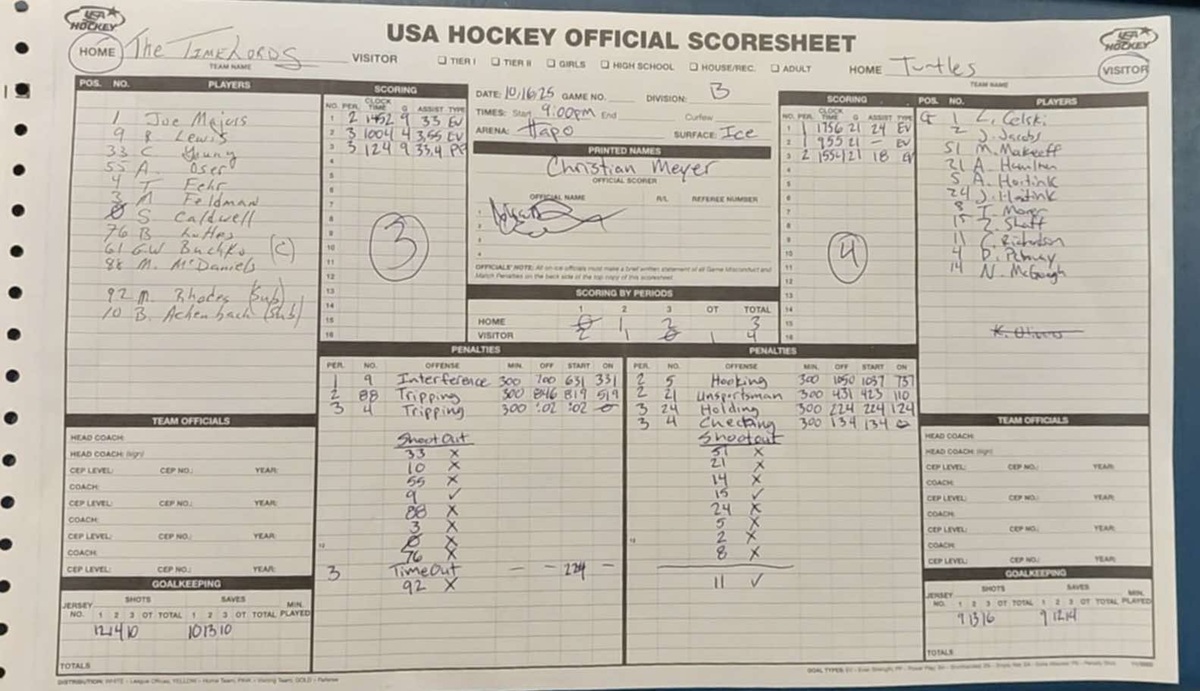 USA HOCKEY
USA HOCKEY OFFICIAL SCORESHEET
USA HOCKEY
HOME The TimeLords VISITOR
TEAM NAME
TIER I TIER II GIRLS HIGH SCHOOL HOUSE/REC. ADULT
HOME Turtles VISITOR
TEAM NAME
POS. NO. PLAYERS
1 Joe Majors
9 R. Lewis
33 C Young
55 A. Oser
4 T. Fehr
3 M Feldman
0 S. Caldwell
76 B
61 GW Buchko (C)
88 M. McDaniels
92 M. Rhodes (Sub)
10 B. Achenbach (Sub)
SCORING
NO. PER. CLOCK TIME G ASSIST TYPE
1 2 1452 9 33 EV
2 3 1004 4 3,55 EV
3 3 124 9 33,4 PP
4
5
6
7
8
9
10
11
12
13
14
15
16
3
DATE: 10/16/25 GAME NO. DIVISION: B
TIMES: Start 9:00pm End Curfew
ARENA: Hapo SURFACE: Ice
PRINTED NAMES
Christian Meyer
OFFICIAL SCORER
OFFICIAL NAME R/L REFEREE NUMBER
1
2
3
4
OFFICIALS' NOTE: All on-ice officials must make a brief written statement of all Game Misconduct and
Match Penalties on the back side of the top copy of this scoresheet.
SCORING BY PERIODS
1 2 3 OT TOTAL
HOME 0 1 2 3
VISITOR 2 1 0 1 4
SCORING
NO. PER. CLOCK TIME G ASSIST TYPE
1 1 1756 21 24 EV
2 1 955 21 - EV
3 2 1554 21 18 EV
4
5
6
7
8
9
10
11
12
13
14
15
16
4
POS. NO. PLAYERS
G 1 L. Celski
2 J. Jacobs
51 M. Makeeff
21 A. Hamilton
5 A. Hoitink
24 J. Hoitink
8 T. Moyer
15 Z. Shaff
11 C. Richardson
4 D.
14 N. McGough
PENALTIES
PER. NO. OFFENSE MIN. OFF START ON
1 9 Interference 300 700 631 331
2 88 Tripping 300 846 819 519
3 4 Tripping 300 :02 :02 0
ShootOut
33 X
10 X
55 X
9 ✓
88 X
3 X
0 X
76 X
3 TimeOut - - 224 -
92 X
PENALTIES
PER. NO. OFFENSE MIN. OFF START ON
2 5 Hooking 300 1050 1037 737
2 21 Unsportsman 300 431 423 110
3 24 Holding 300 224 224 124
3 4 Checking 300 134 134 0
Shootout
51 X
21 X
14 X
15 ✓
24 X
5 X
2 X
8 X
11 ✓
TEAM OFFICIALS
HEAD COACH:
HEAD COACH: (sign)
CEP LEVEL: CEP NO.: YEAR:
COACH:
CEP LEVEL: CEP NO.: YEAR:
COACH:
CEP LEVEL: CEP NO.: YEAR:
COACH:
CEP LEVEL: CEP NO.: YEAR:
GOALKEEPING
JERSEY NO. SHOTS SAVES MIN. PLAYED
1 2 3 OT TOTAL 1 2 3 OT TOTAL
12 14 10 10 13 10
TOTALS
TEAM OFFICIALS
HEAD COACH:
HEAD COACH: (sign)
CEP LEVEL: CEP NO.: YEAR:
COACH:
CEP LEVEL: CEP NO.: YEAR:
COACH:
CEP LEVEL: CEP NO.: YEAR:
COACH:
CEP LEVEL: CEP NO.: YEAR:
GOALKEEPING
JERSEY NO. SHOTS SAVES MIN. PLAYED
1 2 3 OT TOTAL 1 2 3 OT TOTAL
9 13 16 9 12 14
TOTALS
DISTRIBUTION: WHITE - League Offices, YELLOW - Home Team, PINK - Visiting Team, GOLD - Referee